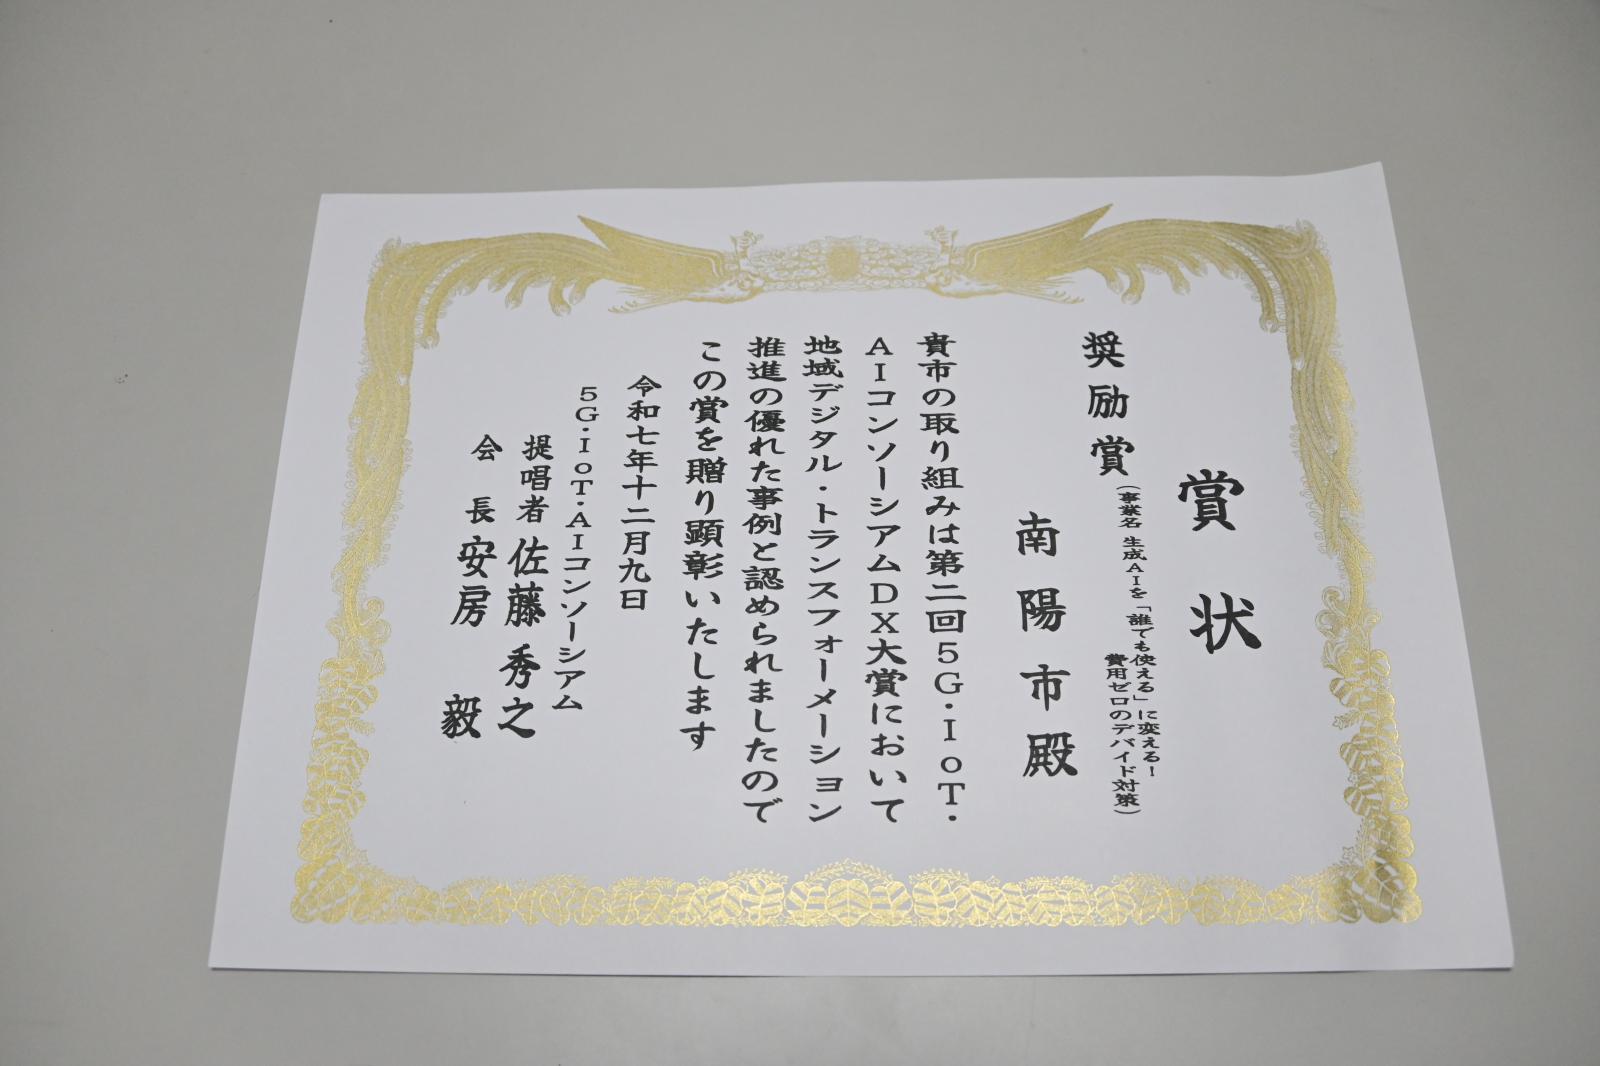 賞状
奨励賞(事業名 生成AIを「誰でも使える」に変える!
費用ゼロのデバイド対策)
南陽市殿
貴市の取り組みは第二回5G・IoT・
AIコンソーシアムDX大賞において
地域デジタル・トランスフォーメーション
推進の優れた事例と認められましたので
この賞を贈り顕彰いたします
令和七年十二月九日
5G・IoT・AIコンソーシアム
提唱者 佐藤 秀之
会長 安房 毅